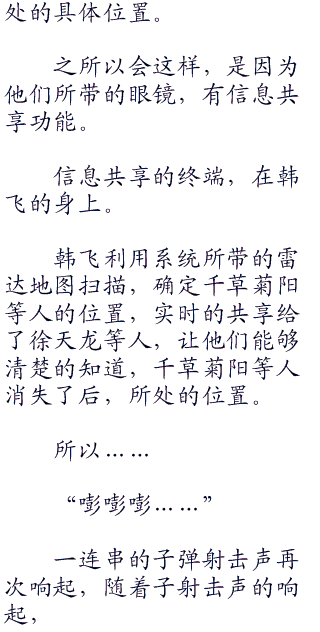 处的具体位置。
之所以会这样，是因为
他们所带的眼镜，有信息共
享功能。
信息共享的终端，在韩
飞的身上。
韩飞利用系统所带的雷
达地图扫描，确定千草菊阳
等人的位置，实时的共享给
了徐天龙等人，让他们能够
清楚的知道，千草菊阳等人
消失了后，所处的位置。
所以……
“嘭嘭嘭……”
一连串的子弹射击声再
次响起，随着子射击声的响
起，